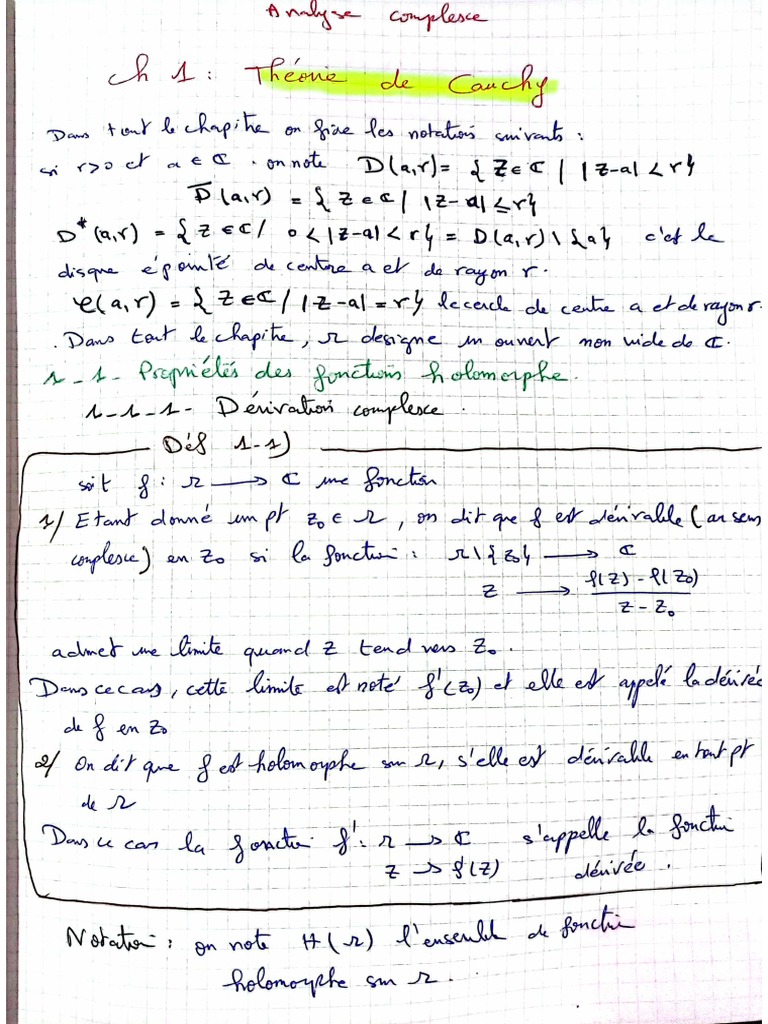 Analyse complexe
Ch 1 : Théorie de Cauchy
Dans tout le chapitre on fixe les notations suivants :
si r>0 et a ∈ ℂ . on note D(a,r) = { Z ∈ ℂ / |z-a| < r}
D̅(a,r) = { z ∈ ℂ / |z-a| ≤ r}
D*(a,r) = { z ∈ ℂ / 0 < |z-a| < r } = D(a,r) \ {a} c'est le
disque épointé de centre a et de rayon r.
𝒞(a,r) = { Z ∈ ℂ / |z-a| = r} le cercle de centre a et de rayon r.
. Dans tout le chapitre, Ω designe un ouvert non vide de ℂ.
1-1- Propriétés des fonctions holomorphe.
1-1-1- Dérivation complexe.
Déf 1-1)
soit f : Ω ⟶ ℂ une fonction
1/ Etant donné un pt z₀ ∈ Ω, on dit que f est dérivable (au sens
complexe) en z₀ si la fonction : Ω \ {z₀} ⟶ ℂ
z ⟶ (f(z) - f(z₀))/(z - z₀)
admet une limite quand z tend vers z₀.
Dans ce cas, cette limite est noté f'(z₀) et elle est appelé la dérivée
de f en z₀
2/ On dit que f est holomorphe sur Ω, s'elle est dérivable en tout pt
de Ω
Dans ce cas la fonction f' : Ω → ℂ s'appelle la fonction
z → f'(z) dérivée.
Notation : on note H(Ω) l'ensemble de fonction
holomorphe sur Ω.